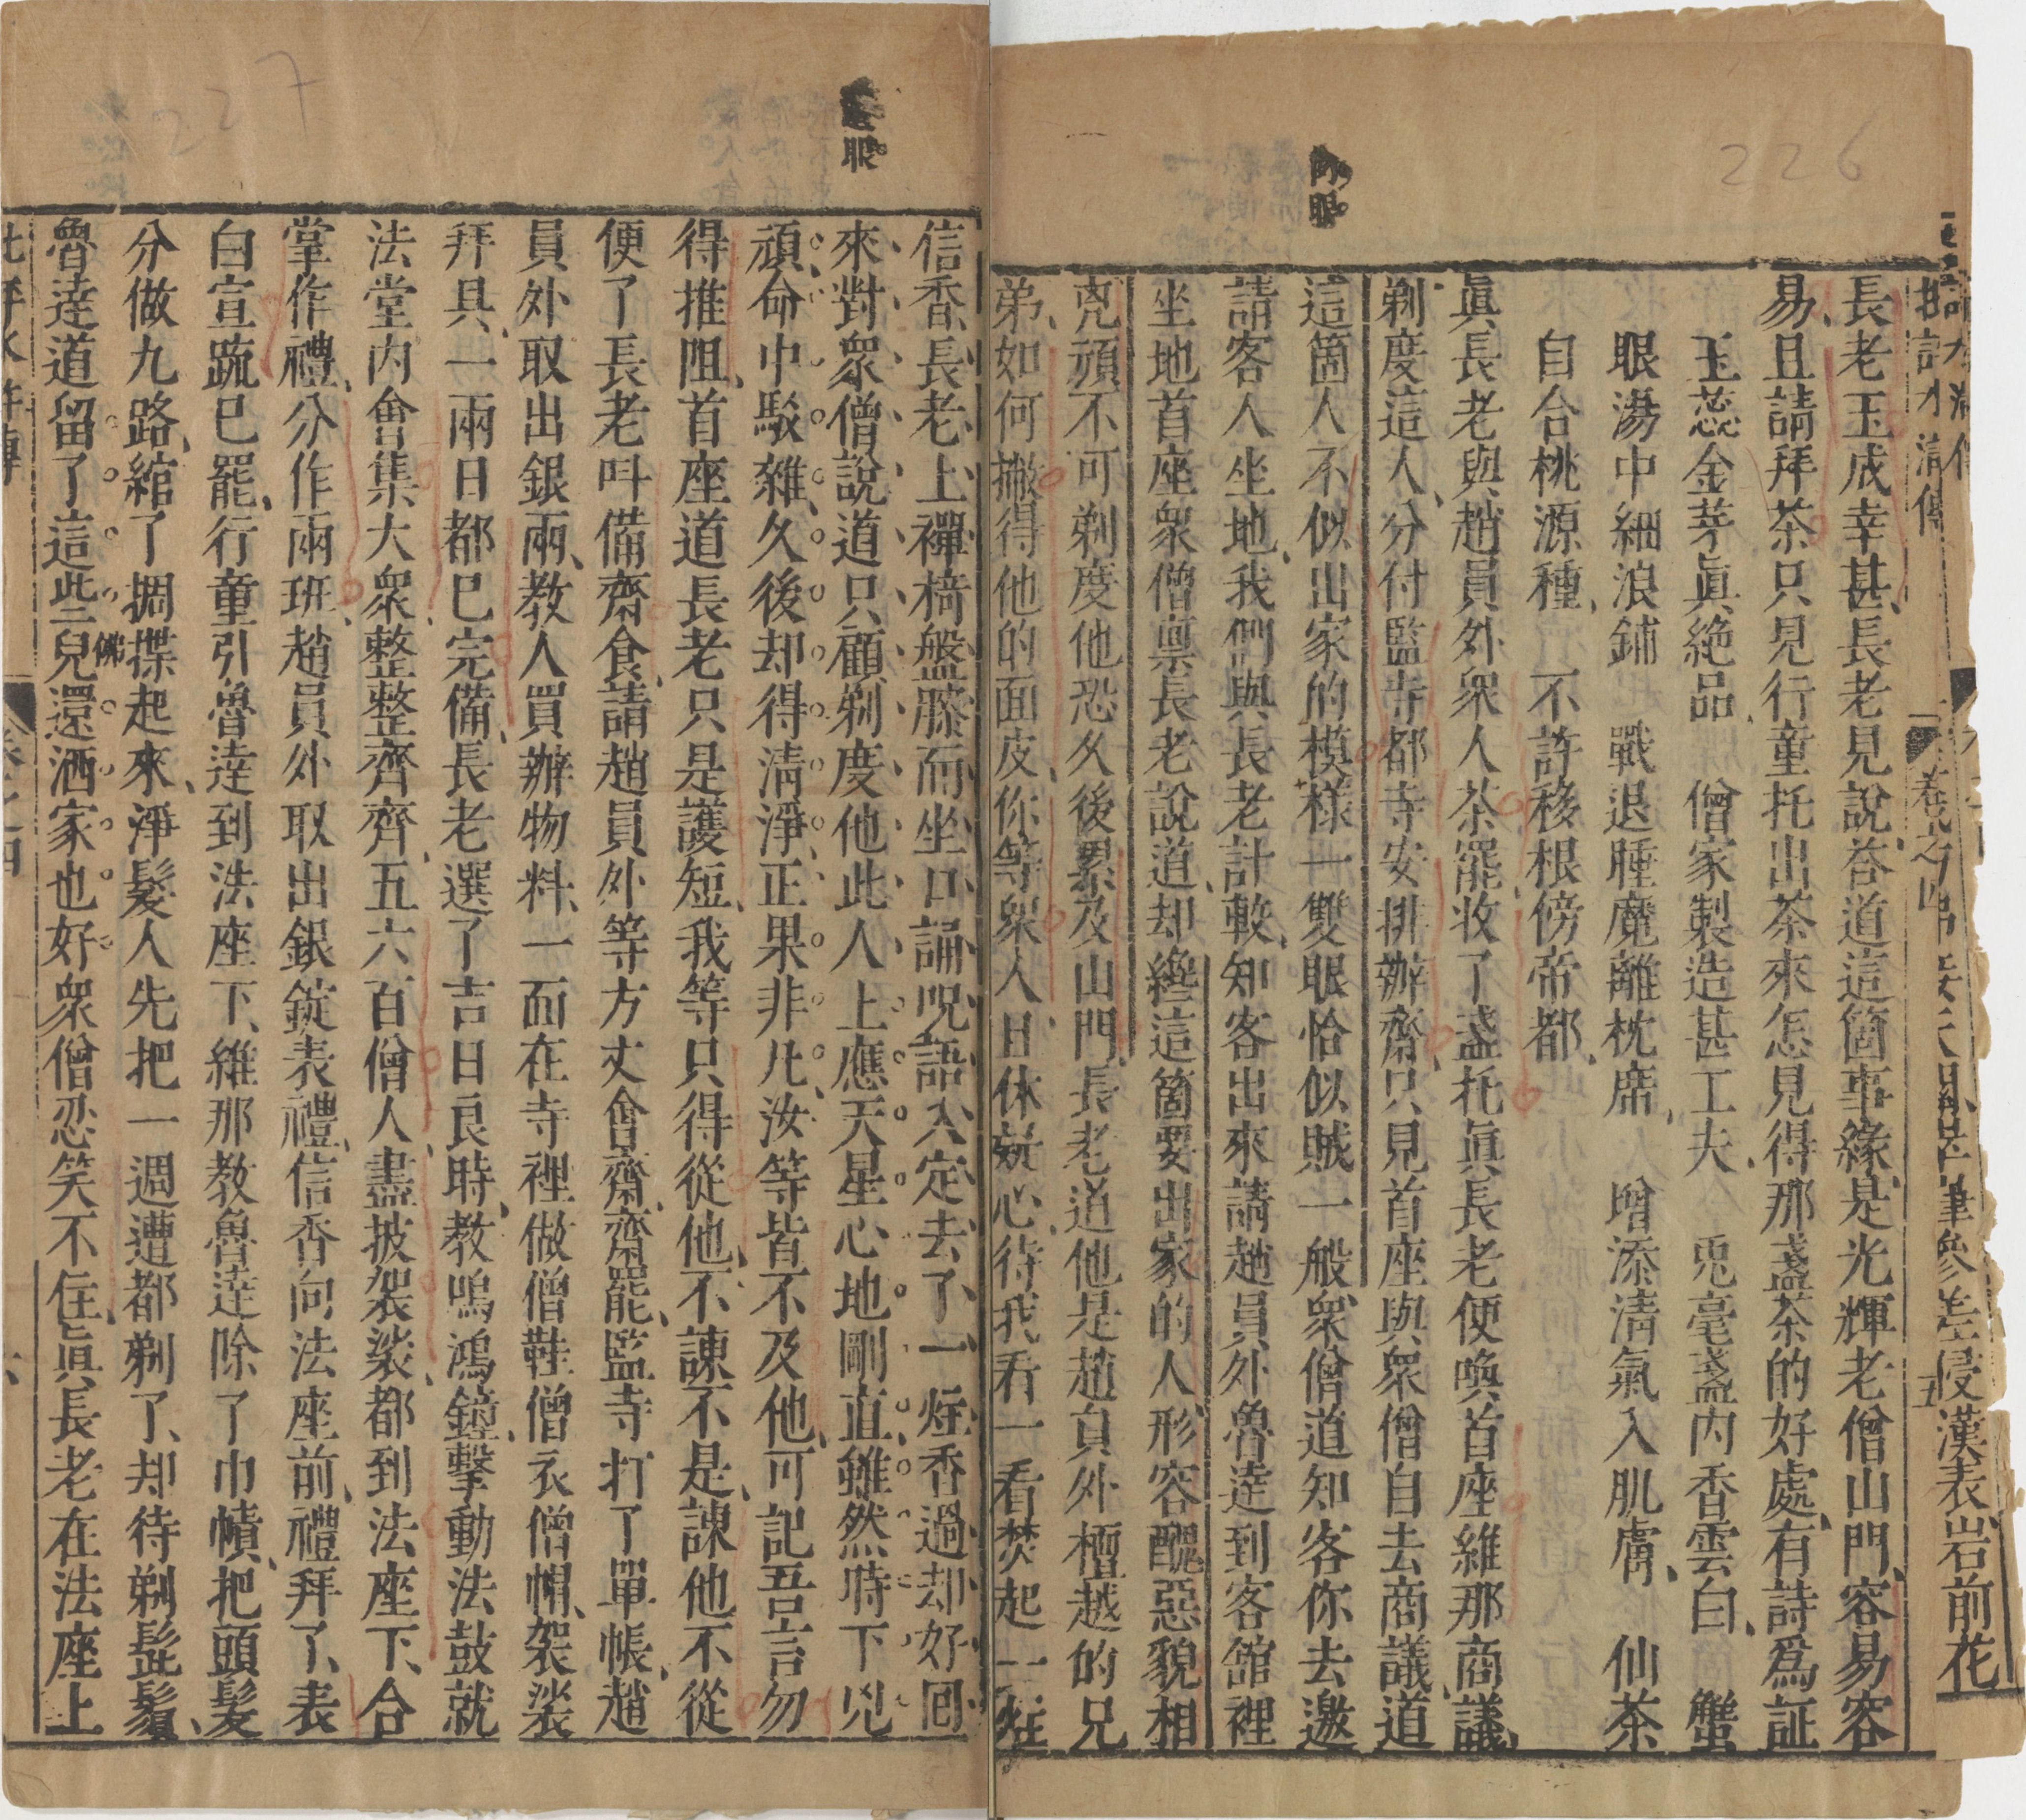 226
批評水滸傳
卷之四
五
岩前花
眼
長老玉成幸甚長老見說荅道這箇事緣是光輝老僧山門容易容
易且請拜茶只見行童托出茶來怎見得那盞茶的好處有詩爲証
玉蕊金芽眞絶品　僧家製造甚工夫　兎毫盞內香雲白　蟹
眼湯中細浪鋪　戰退睡魔離枕席　增添清氣入肌膚　仙茶
自合桃源種　不許移根傍帝都
眞長老與趙員外衆人茶罷收了盞托眞長老便喚首座維那商議
剃度這人分付監寺都寺安排辦齋只見首座與衆僧自去商議道
這箇人不似出家的模樣一雙眼恰似賊一般衆僧道知客你去邀
請客人坐地我們與長老計較知客出來請趙員外魯達到客舘裡
坐地首座衆僧禀長老說道却纔這箇要出家的人形容醜惡貌相
兇頑不可剃度他恐久後累及山門長老道他是趙員外檀越的兄
弟如何撇得他的面皮你等衆人且休疑心待我看一看焚起一炷
227
眼
信香長老上禪椅盤膝而坐口誦呪語入定去了一炷香過却好囘
來對衆僧說道只顧剃度他此人上應天星心地剛直雖然時下兇
頑命中駁雜久後却得清淨正果非凡汝等皆不及他可記吾言勿
得推阻首座道長老只是護短我等只得從他不諫不是諫他不從
便了長老呌備齋食請趙員外等方丈會齋齋罷監寺打了單帳趙
員外取出銀兩教人買辦物料一面在寺裡做僧鞋僧衣僧帽袈裟
拜具一兩日都已完備長老選了吉日良時教鳴鴻鐘擊動法鼓就
法堂內會集大衆整整齊齊五六百僧人盡披袈裟都到法座下合
掌作禮分作兩班趙員外取出銀錠表禮信香向法座前禮拜了表
白宣疏已罷行童引魯達到法座下維那教魯達除了巾幘把頭髮
分做九路綰了捆揲起來淨髮人先把一週遭都剃了却待剃髭鬚
魯達道留了這些兒還洒家也好衆僧忍笑不住眞長老在法座上
佛